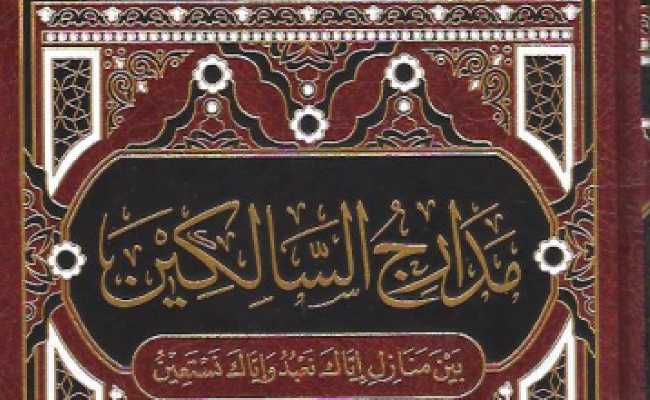 مَدَارِجُ السَّالِكِيْنَ
بَيْنَ مَنَازِلِ إِيَّاكَ نَعْبُدُ وَإِيَّاكَ نَسْتَعِيْنُ